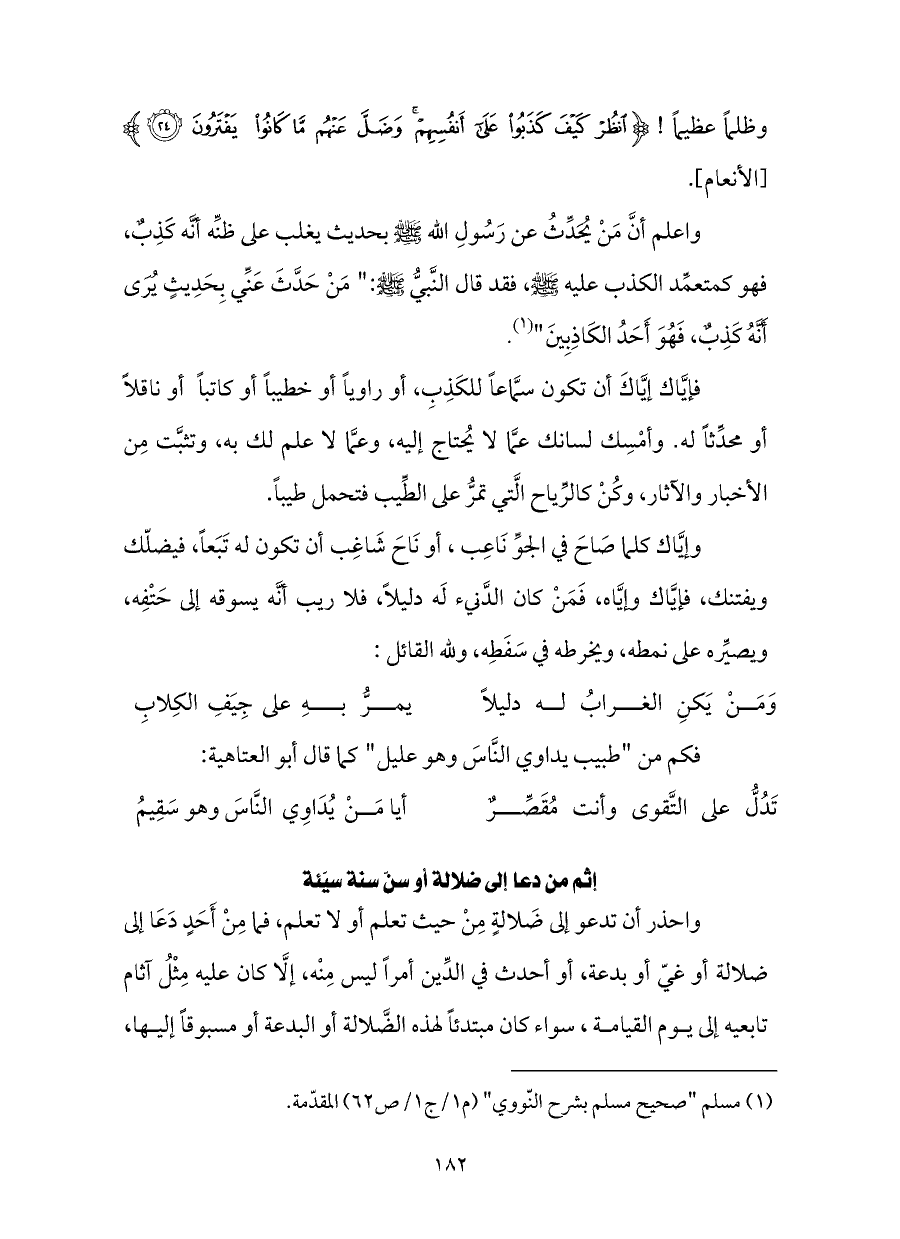 وظلماً عظيماً ! ﴿ ٱنظُرۡ كَيۡفَ كَذَبُواْ عَلَىٰٓ أَنفُسِهِمۡۚ وَضَلَّ عَنۡهُم مَّا كَانُواْ يَفۡتَرُونَ ٢٤ ﴾
[الأنعام].
واعلم أنَّ مَنْ يُحَدِّثُ عن رَسُولِ الله ﷺ بحديث يغلب على ظنِّه أنَّه كَذِبٌ،
فهو كمتعمِّد الكذب عليه ﷺ، فقد قال النَّبيُّ ﷺ:" مَنْ حَدَّثَ عَنِّي بِحَدِيثٍ يُرَى
أَنَّهُ كَذِبٌ، فَهُوَ أَحَدُ الكَاذِبِينَ"(١).
فإيَّاك إيَّاكَ أن تكون سمَّاعاً للكَذِبِ، أو راوياً أو خطيباً أو كاتباً أو ناقلاً
أو محدِّثاً له. وأمْسِك لسانك عمَّا لا يُحتاج إليه، وعمَّا لا علم لك به، وتثبَّت مِن
الأخبار والآثار، وكُنْ كالرِّياح الَّتي تمرُّ على الطِّيب فتحمل طيباً.
وإيَّاك كلما صَاحَ في الجوِّ نَاعِب ، أو نَاحَ شَاغِب أن تكون له تَبَعاً، فيضلّك
ويفتنك، فإيَّاك وإيَّاه، فَمَنْ كان الدَّنيء لَه دليلاً، فلا ريب أنَّه يسوقه إلى حَتْفِه،
ويصيِّره على نمطه، ويخرطه في سَفَطِه، ولله القائل :
وَمَـــنْ يَكنِ الغـــــرابُ لـــه دليلاً يمـــــرُّ بـــــهِ على جِيَفِ الكِلابِ
فكم من "طبيب يداوي النَّاسَ وهو عليل" كما قال أبو العتاهية:
تَدُلُّ على التَّقوى وأنت مُقَصِّـــــرٌ أيا مَـــنْ يُدَاوِي النَّاسَ وهو سَقِيمُ
إثم من دعا إلى ضلالة أو سنّ سنة سيّئة
واحذر أن تدعو إلى ضَلالةٍ مِنْ حيث تعلم أو لا تعلم، فما مِنْ أَحَدٍ دَعَا إلى
ضلالة أو غيّ أو بدعة، أو أحدث في الدِّين أمراً ليس مِنْه، إلَّا كان عليه مِثْلُ آثام
تابعيه إلى يــوم القيامـة ، سواء كان مبتدئاً لهذه الضَّلالة أو البدعة أو مسبوقاً إليـها،
(١) مسلم "صحيح مسلم بشرح النّووي" (م١/ ج١/ ص٦٢) المقدّمة.
١٨٢